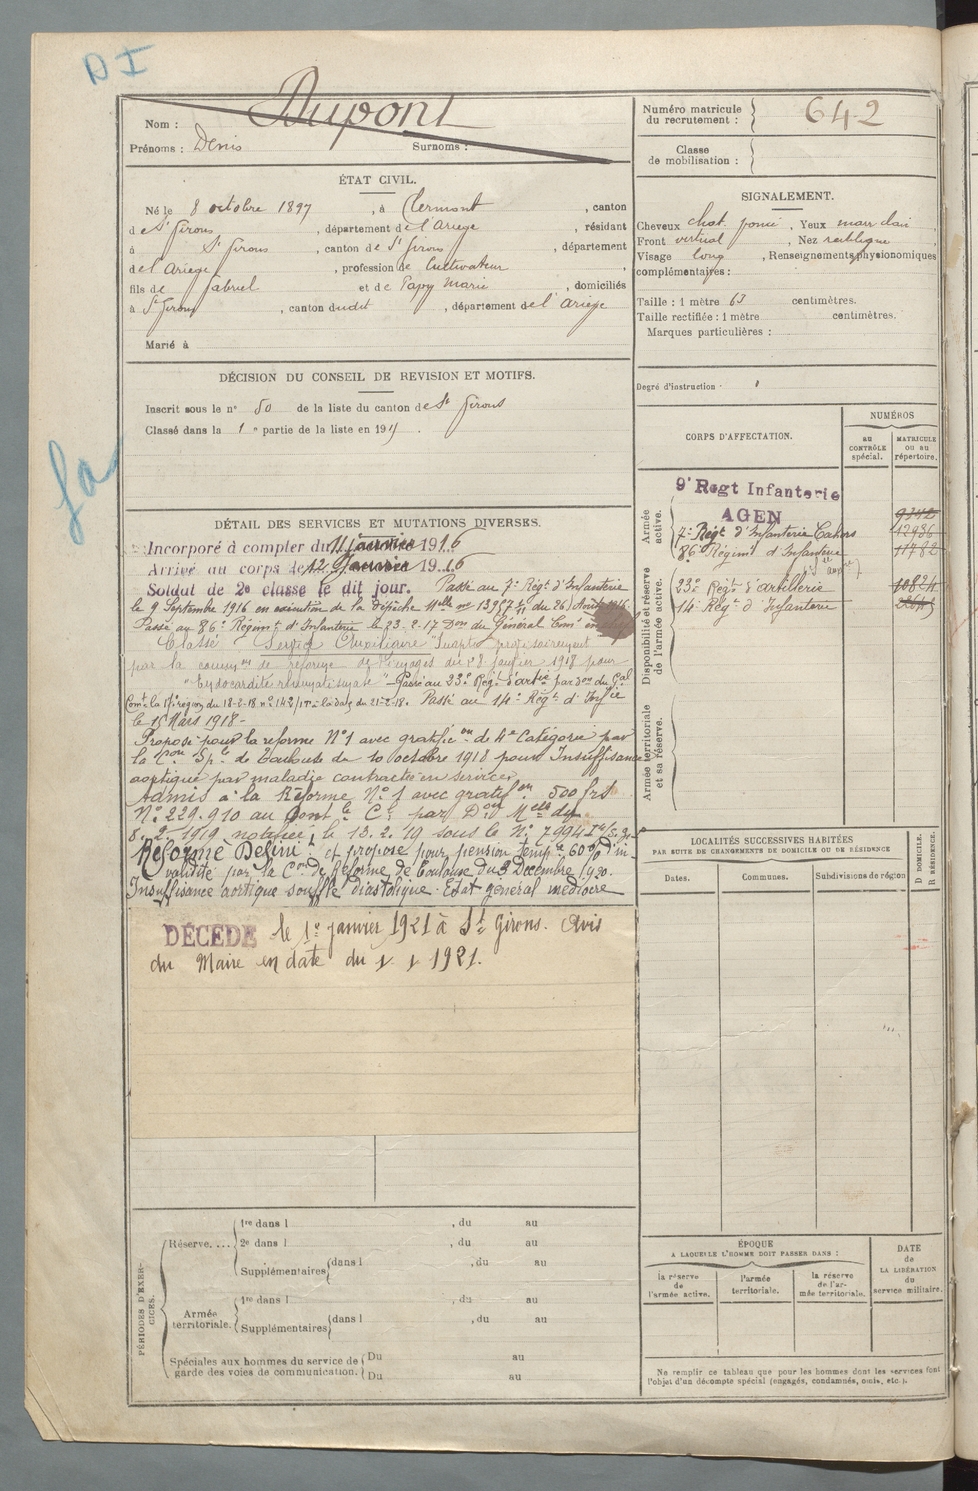 D I
Nom : Dupont
Prénoms : Denis Surnoms :
Numéro matricule
du recrutement : 642
Classe
de mobilisation :
ÉTAT CIVIL.
Né le 8 octobre 1897, à Clermont, canton
de St Girons, département de l'Ariège, résidant
à St Girons, canton de St Girons, département
de l'Ariège, profession de Cultivateur,
fils de Gabriel et de Papy Marie, domiciliés
à St Girons, canton dudit, département de l'Ariège
Marié à
SIGNALEMENT.
Cheveux chat. foncé, Yeux marr clair,
Front vertical, Nez rectiligne
Visage long, Renseignements physionomiques
complémentaires :
Taille : 1 mètre 63 centimètres.
Taille rectifiée : 1 mètre centimètres.
Marques particulières :
Degré d'instruction :
DÉCISION DU CONSEIL DE REVISION ET MOTIFS.
Inscrit sous le n° 50 de la liste du canton de St Girons
Classé dans la 1e partie de la liste en 191
DÉTAIL DES SERVICES ET MUTATIONS DIVERSES.
Incorporé à compter du 11 Janvier 1916
Arrivé au corps le 12 Janvier 1916
Soldat de 2e classe le dit jour. Passé au 7e Régt d'Infanterie
le 9 Septembre 1916 en exécution de la dépêche Mlle no du 26 Août 1916
Passé au 86e Régimt d'Infanterie le 23-2-17 Don du Général Comt en
Classé Service Auxiliaire "Inapte provisoirement
par la common de réforme de du 8 janvier 1918 pour
"Endocardite rhumatismale" - Passé au 23e Régt d'artie par Don du Gal
Comt la 17e région du 18-2-18 no 142 du 21-2-18. Passé au 14e Régt d'Infie
le 15 Mars 1918 -
Proposé pour la réforme N°1 avec gratificon de 4e Catégorie par
la Con Sple de Toulouse du 10 octobre 1918 pour Insuffisance
aortique par maladie contractée en service
Admis à la Réforme N°1 avec gratifon 500 frs
N° 229.910 au Cont le Cl par Don Melle du
8.2.1919, notifiée le 13.2.19 sous le N° 7994
Réformé Définit et proposé pour pension tempre 60% d'in-
validité par la Con de Réforme de Toulouse du 3 Décembre 1920.
Insuffisance aortique souffle diastolique. Etat général médiocre
DÉCÉDÉ le 1e janvier 1921 à St Girons. Avis
du Maire en date du 1 1 1921.
CORPS D'AFFECTATION.
NUMÉROS
au
CONTRÔLE
spécial.
MATRICULE
ou au
répertoire.
Armée
active.
9e Regt Infanterie
AGEN 9342
7e Régt d'Infanterie Cahors 12986
86e Régimt d'Infanterie 11782
Disponibilité et réserve
de l'armée active.
23e Régt d'artillerie 10824
14e Régt d'Infanterie
Armée territoriale
et sa réserve.
LOCALITÉS SUCCESSIVES HABITÉES
PAR SUITE DE CHANGEMENTS DE DOMICILE OU DE RÉSIDENCE
Dates. Communes. Subdivisions de région
D DOMICILE.
R RÉSIDENCE.
PÉRIODES D'EXER-
CICES.
Réserve....
1re dans l , du au
2e dans l , du au
Supplémentaires dans l , du au
Armée
territoriale.
1re dans l , du au
Supplémentaires dans l , du au
Spéciales aux hommes du service de
garde des voies de communication.
Du au
Du au
ÉPOQUE
A LAQUELLE L'HOMME DOIT PASSER DANS :
la réserve
de
l'armée active.
l'armée
territoriale.
la réserve
de l'ar-
mée territoriale.
DATE
de
LA LIBÉRATION
du
service militaire.
Ne remplir ce tableau que pour les hommes dont les services font
l'objet d'un décompte spécial (engagés, condamnés, omis, etc.).